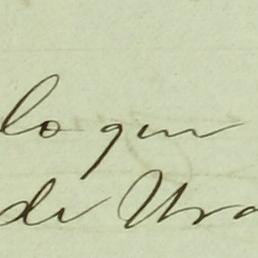 lo que
de Ura